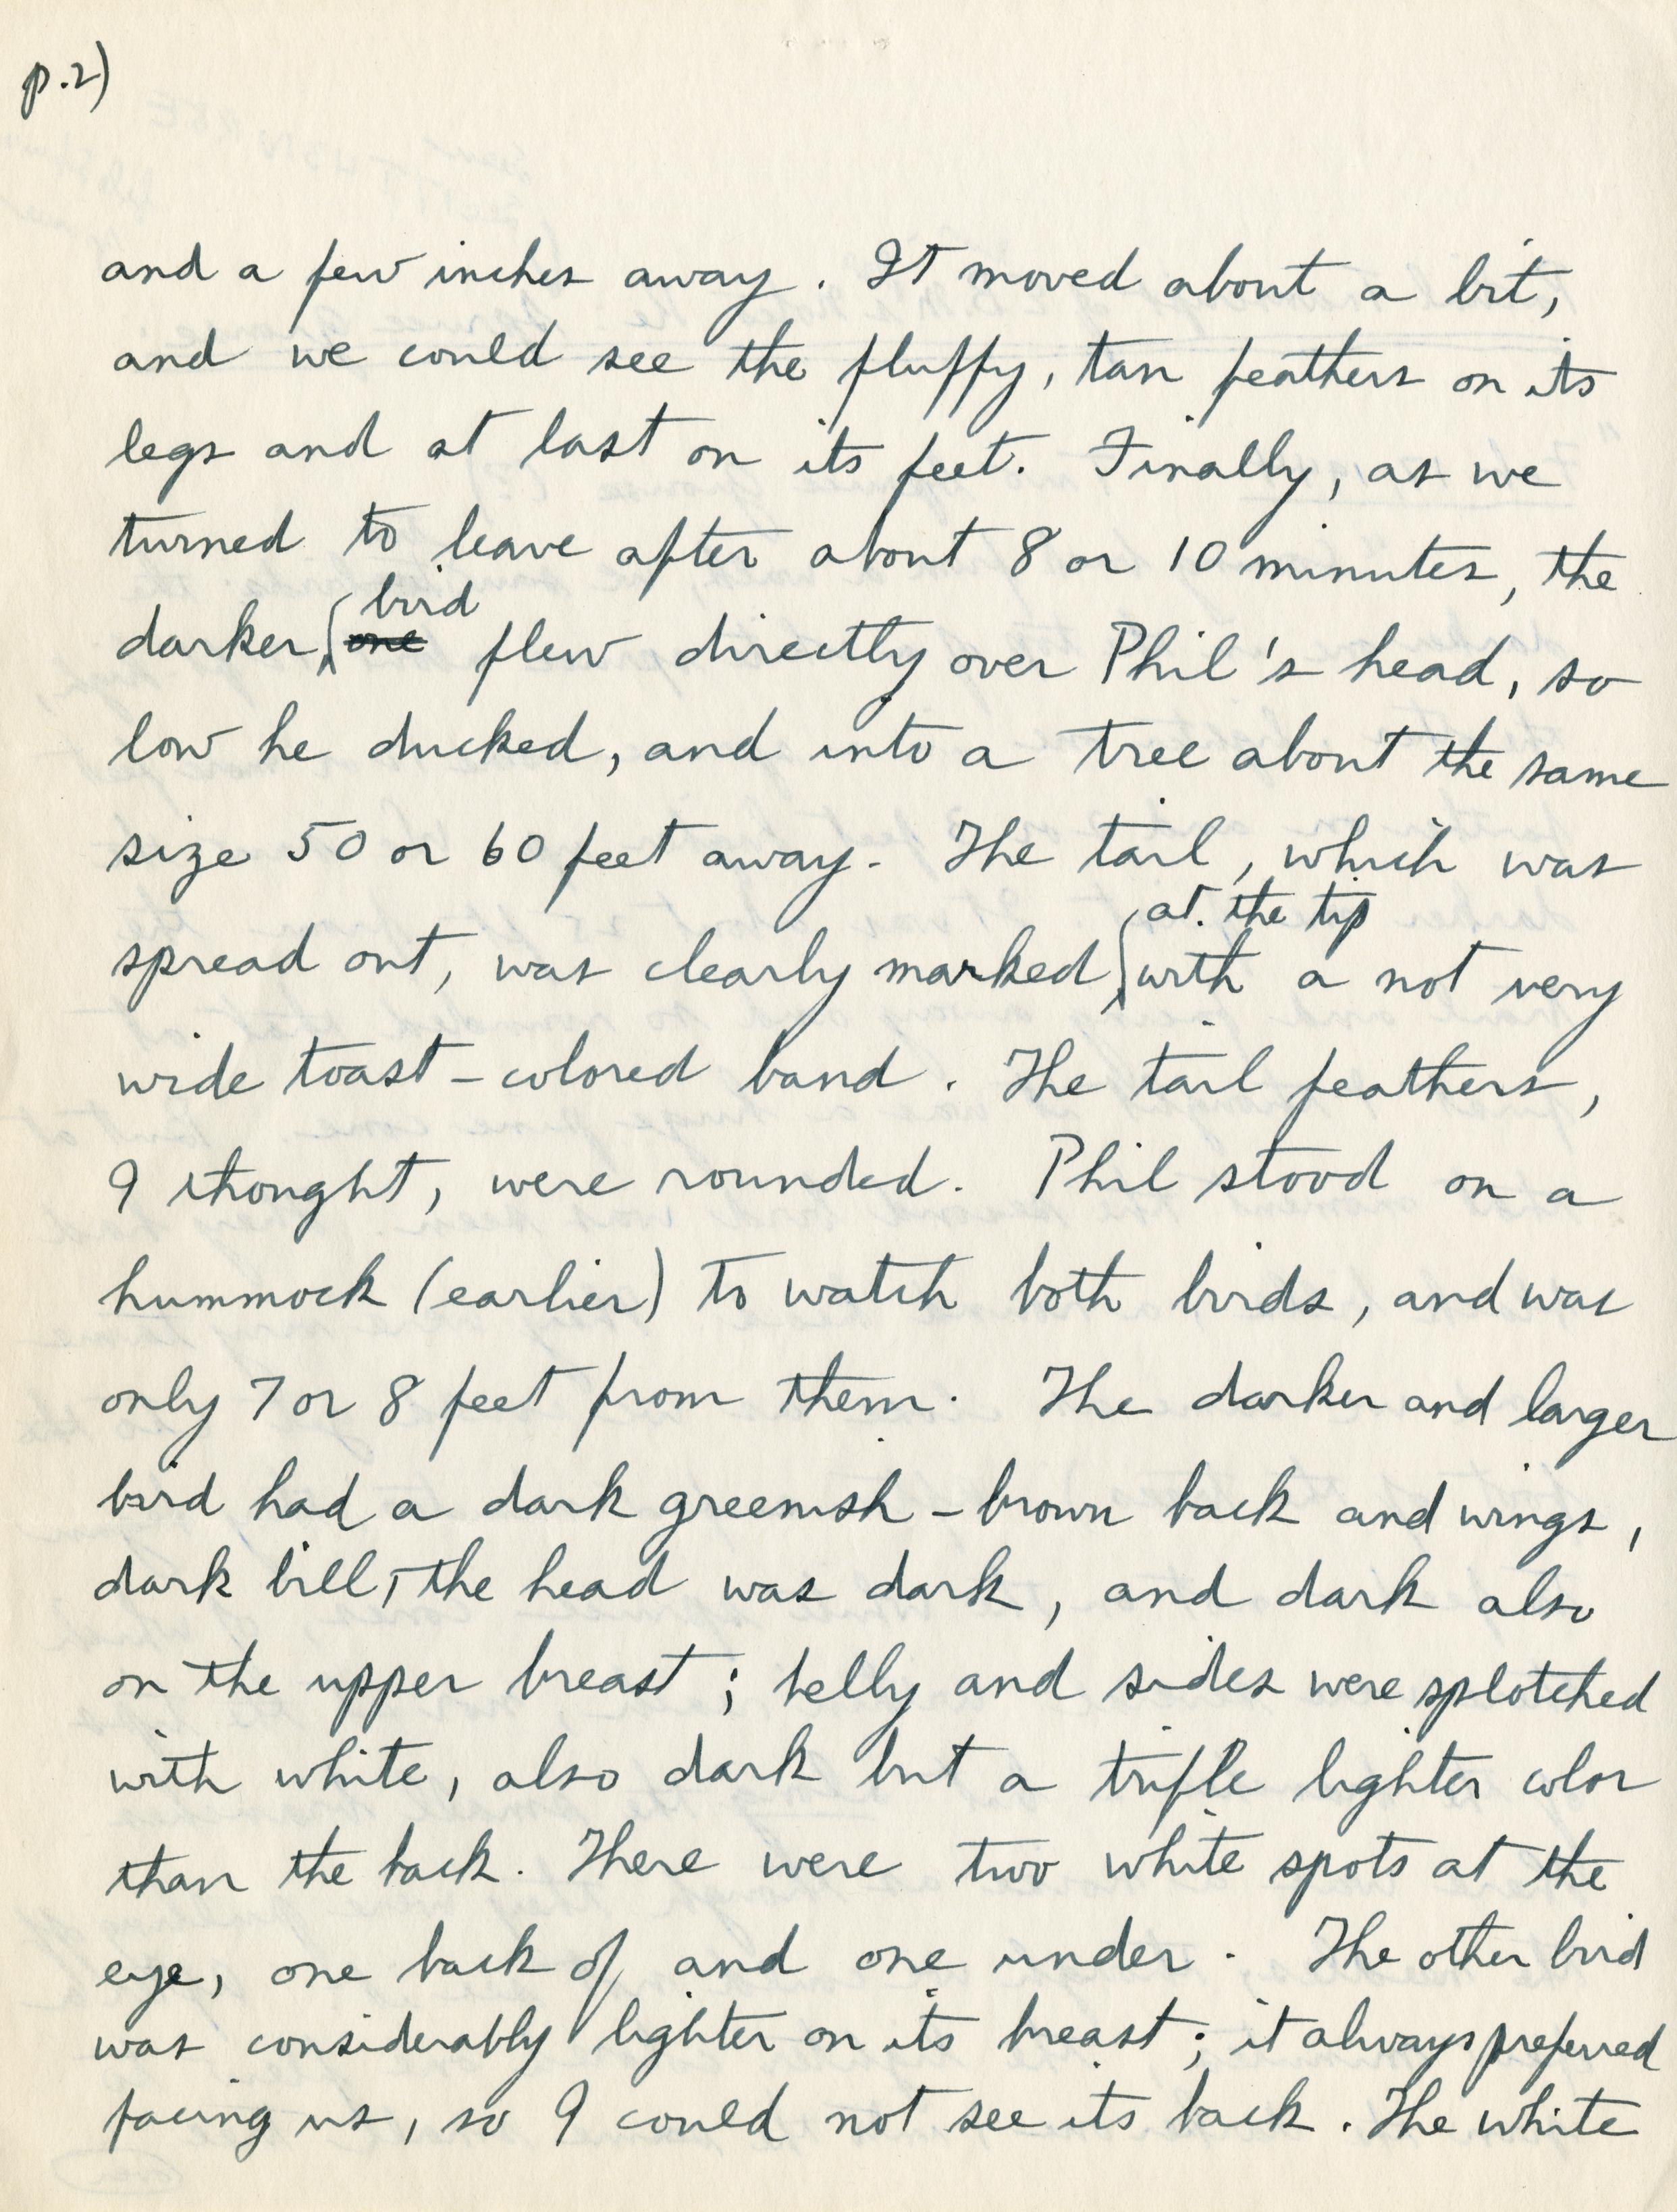 p.2)
and a few inches away. It moved about a bit,
and we could see the fluffy, tan feathers on its
legs and at last on its feet. Finally, as we
turned to leave after about 8 or 10 minutes, the
bird
darker, one flew directly over Phil's head, so
low he ducked, and into a tree about the same
size 50 or 60 feet away. The tail, which was
at the tip
spread out, was clearly marked with a not very
wide toast-colored band. The tail feathers,
I thought, were rounded. Phil stood on a
hummock (earlier) to watch both birds, and was
only 7 or 8 feet from them. The darker and larger
bird had a dark greenish-brown back and wings,
dark bill, the head was dark, and dark also
on the upper breast; belly and sides were splotched
with white, also dark but a trifle lighter color
than the back. There were two white spots at the
eye, one back of and one under. The other bird
was considerably lighter on its breast; it always preferred
facing us, so I could not see its back. The white